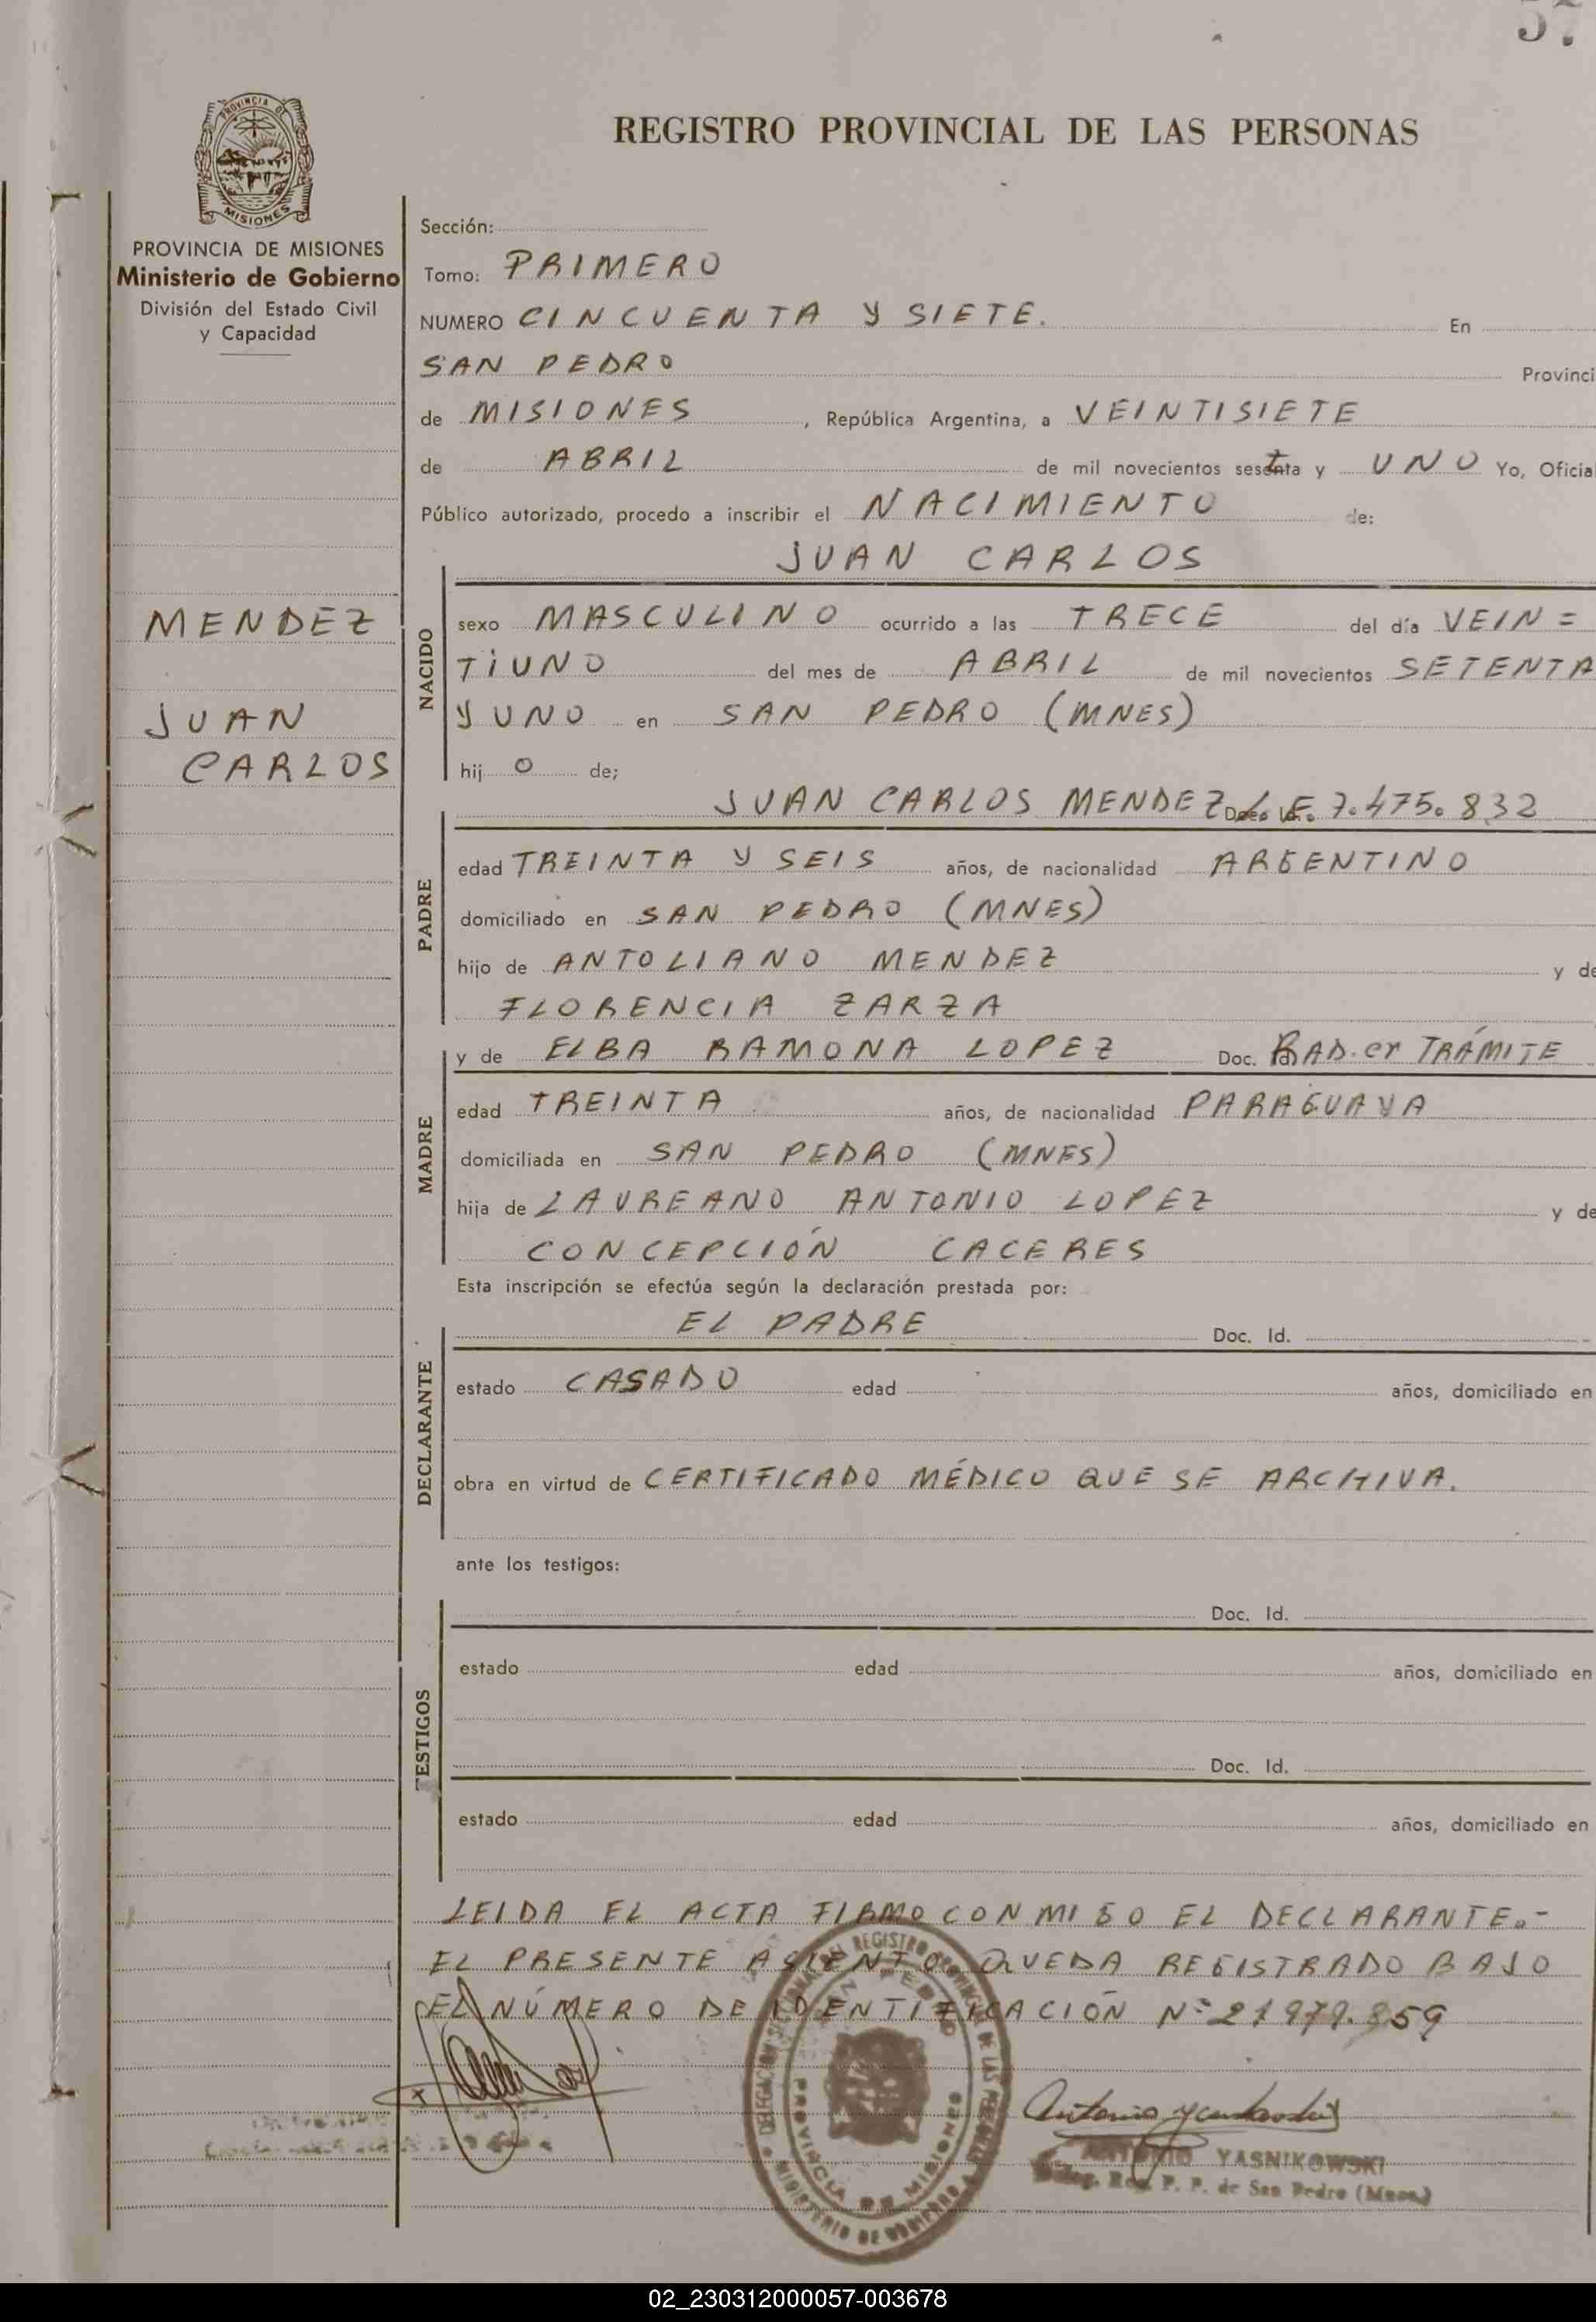 57
REGISTRO PROVINCIAL DE LAS PERSONAS
PROVINCIA DE MISIONES
PROVINCIA DE MISIONES
Ministerio de Gobierno
División del Estado Civil
y Capacidad
Sección:
Tomo: PRIMERO
NUMERO CINCUENTA Y SIETE. En
SAN PEDRO Provinci
de MISIONES, República Argentina, a VEINTISIETE
de ABRIL de mil novecientos setenta y UNO Yo, Oficial
Público autorizado, procedo a inscribir el NACIMIENTO de:
JUAN CARLOS
MENDEZ
JUAN
CARLOS
NACIDO
sexo MASCULINO ocurrido a las TRECE del día VEIN=
TIUNO del mes de ABRIL de mil novecientos SETENTA
Y UNO en SAN PEDRO (MNES)
hij O de;
PADRE
JUAN CARLOS MENDEZ 7.475.832
edad TREINTA Y SEIS años, de nacionalidad ARGENTINO
domiciliado en SAN PEDRO (MNES)
hijo de ANTOLIANO MENDEZ y de
FLORENCIA ZARZA
MADRE
y de ELBA RAMONA LOPEZ Doc. RAD. en TRÁMITE
edad TREINTA años, de nacionalidad PARAGUAYA
domiciliada en SAN PEDRO (MNES)
hija de LAUREANO ANTONIO LOPEZ y de
CONCEPCIÓN CACERES
Esta inscripción se efectúa según la declaración prestada por:
DECLARANTE
EL PADRE Doc. Id.
estado CASADO edad años, domiciliado en
obra en virtud de CERTIFICADO MÉDICO QUE SE ARCHIVA.
ante los testigos:
TESTIGOS
Doc. Id.
estado edad años, domiciliado en
Doc. Id.
estado edad años, domiciliado en
LEIDA EL ACTA FIRMO CONMIGO EL DECLARANTE.-
EL PRESENTE ASIENTO QUEDA REGISTRADO BAJO
EL NÚMERO DE IDENTIFICACIÓN Nº 21979.859
DELEGACION REGISTRO PROVINCIAL DE LAS PERSONAS
SAN PEDRO
PROVINCIA DE MISIONES
MINISTERIO DE GOBIERNO
ANTONIO YASNIKOWSKI
Reg. P. P. de San Pedro (Mnes.)
02_230312000057-003678